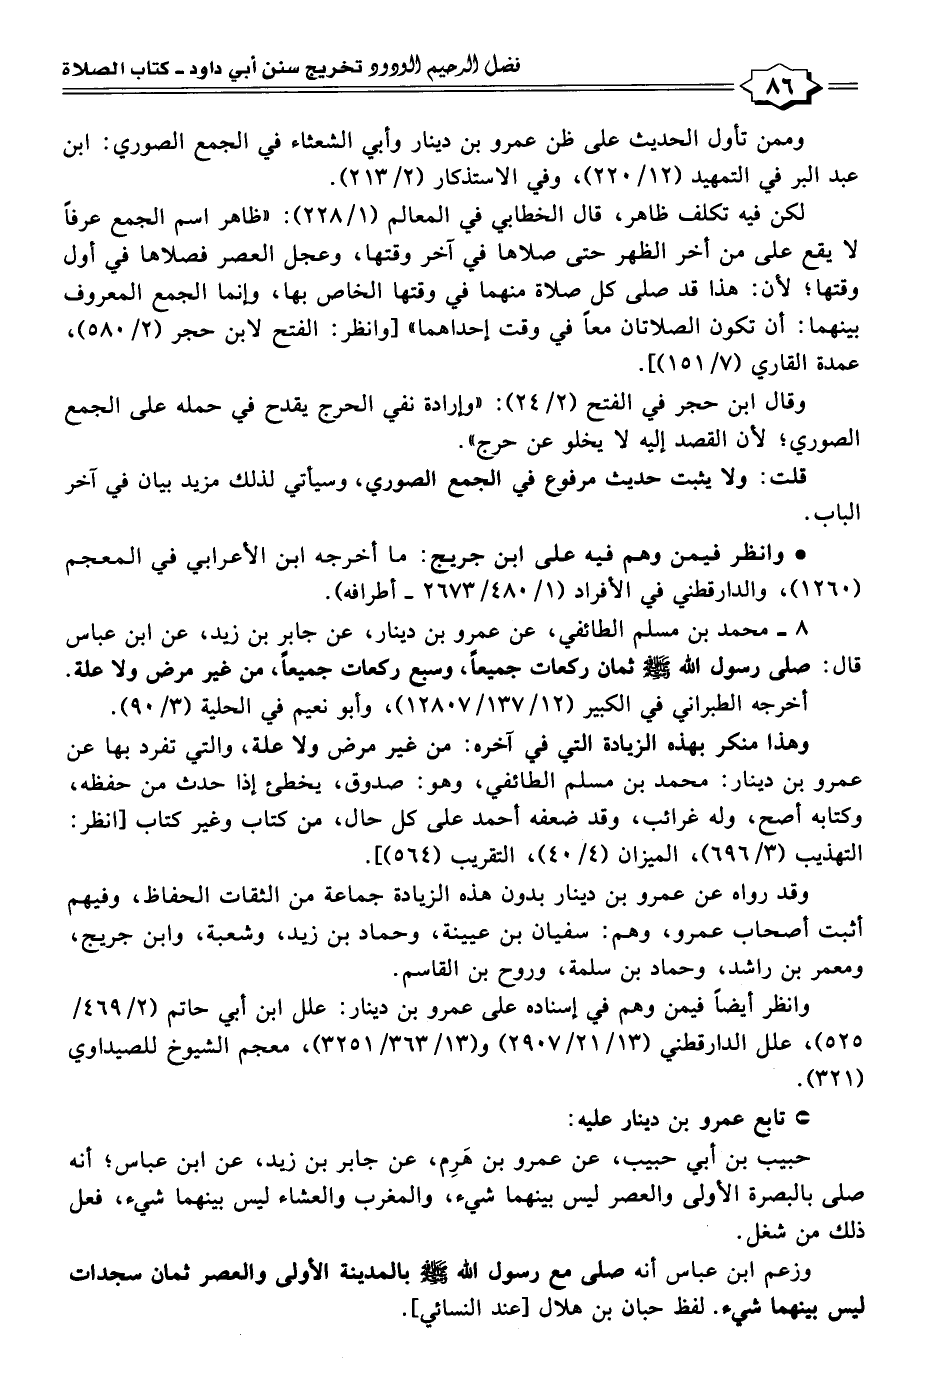 فضل الرحيم الودود تخريج سنن أبي داود - كتاب الصلاة
٨٦
وممن تأول الحديث على ظن عمرو بن دينار وأبي الشعثاء في الجمع الصوري: ابن
عبد البر في التمهيد (١٢/ ٢٢٠)، وفي الاستذكار (٢/ ٢١٣).
لكن فيه تكلف ظاهر، قال الخطابي في المعالم (١/ ٢٢٨): «ظاهر اسم الجمع عرفاً
لا يقع على من أخر الظهر حتى صلاها في آخر وقتها، وعجل العصر فصلاها في أول
وقتها؛ لأن: هذا قد صلى كل صلاة منهما في وقتها الخاص بها، وإنما الجمع المعروف
بينهما: أن تكون الصلاتان معاً في وقت إحداهما» [وانظر: الفتح لابن حجر (٢/ ٥٨٠)،
عمدة القاري (٧/ ١٥١)].
وقال ابن حجر في الفتح (٢/ ٢٤): «وإرادة نفي الحرج يقدح في حمله على الجمع
الصوري؛ لأن القصد إليه لا يخلو عن حرج».
قلت: ولا يثبت حديث مرفوع في الجمع الصوري، وسيأتي لذلك مزيد بيان في آخر
الباب.
• وانظر فيمن وهم فيه على ابن جريج: ما أخرجه ابن الأعرابي في المعجم
(١٢٦٠)، والدارقطني في الأفراد (١/ ٤٨٠/ ٢٦٧٣ - أطرافه).
٨ - محمد بن مسلم الطائفي، عن عمرو بن دينار، عن جابر بن زيد، عن ابن عباس
قال: صلى رسول الله ﷺ ثمان ركعات جميعاً، وسبع ركعات جميعاً، من غير مرض ولا علة.
أخرجه الطبراني في الكبير (١٢/ ١٣٧/ ١٢٨٠٧)، وأبو نعيم في الحلية (٣/ ٩٠).
وهذا منكر بهذه الزيادة التي في آخره: من غير مرض ولا علة، والتي تفرد بها عن
عمرو بن دينار: محمد بن مسلم الطائفي، وهو: صدوق، يخطئ إذا حدث من حفظه،
وكتابه أصح، وله غرائب، وقد ضعفه أحمد على كل حال، من كتاب وغير كتاب [انظر:
التهذيب (٣/ ٦٩٦)، الميزان (٤/ ٤٠)، التقريب (٥٦٤)].
وقد رواه عن عمرو بن دينار بدون هذه الزيادة جماعة من الثقات الحفاظ، وفيهم
أثبت أصحاب عمرو، وهم: سفيان بن عيينة، وحماد بن زيد، وشعبة، وابن جريج،
ومعمر بن راشد، وحماد بن سلمة، وروح بن القاسم.
وانظر أيضاً فيمن وهم في إسناده على عمرو بن دينار: علل ابن أبي حاتم (٢/ ٤٦٩/
٥٢٥)، علل الدارقطني (١٣/ ٢١/ ٢٩٠٧) و(١٣/ ٣٦٣/ ٣٢٥١)، معجم الشيوخ للصيداوي
(٣٢١).
⮌ تابع عمرو بن دينار عليه:
حبيب بن أبي حبيب، عن عمرو بن هَرِم، عن جابر بن زيد، عن ابن عباس؛ أنه
صلى بالبصرة الأولى والعصر ليس بينهما شيء، والمغرب والعشاء ليس بينهما شيء، فعل
ذلك من شغل.
وزعم ابن عباس أنه صلى مع رسول الله ﷺ بالمدينة الأولى والعصر ثمان سجدات
ليس بينهما شيء. لفظ حبان بن هلال [عند النسائي].